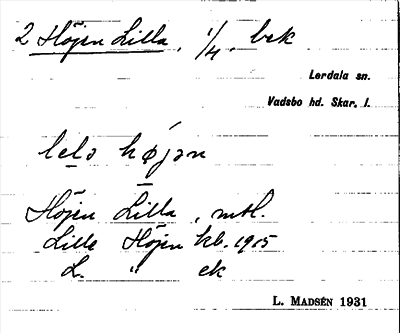 2 Höjen Lilla, 1/4, bek
Lerdala sn.
Vadsbo hd. Skar. l.
lelə højən
Höjen Lilla, mtl.
Lille Höjen kb. 1915
L. " ek
L. MADSÉN 1931